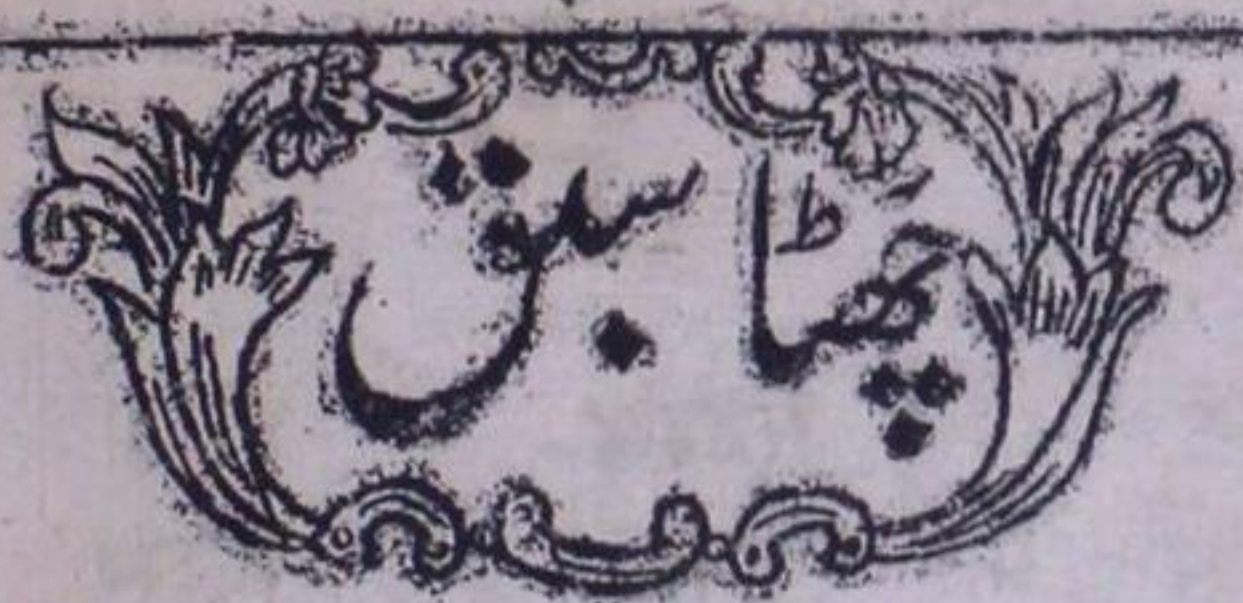 چھٹا سبق